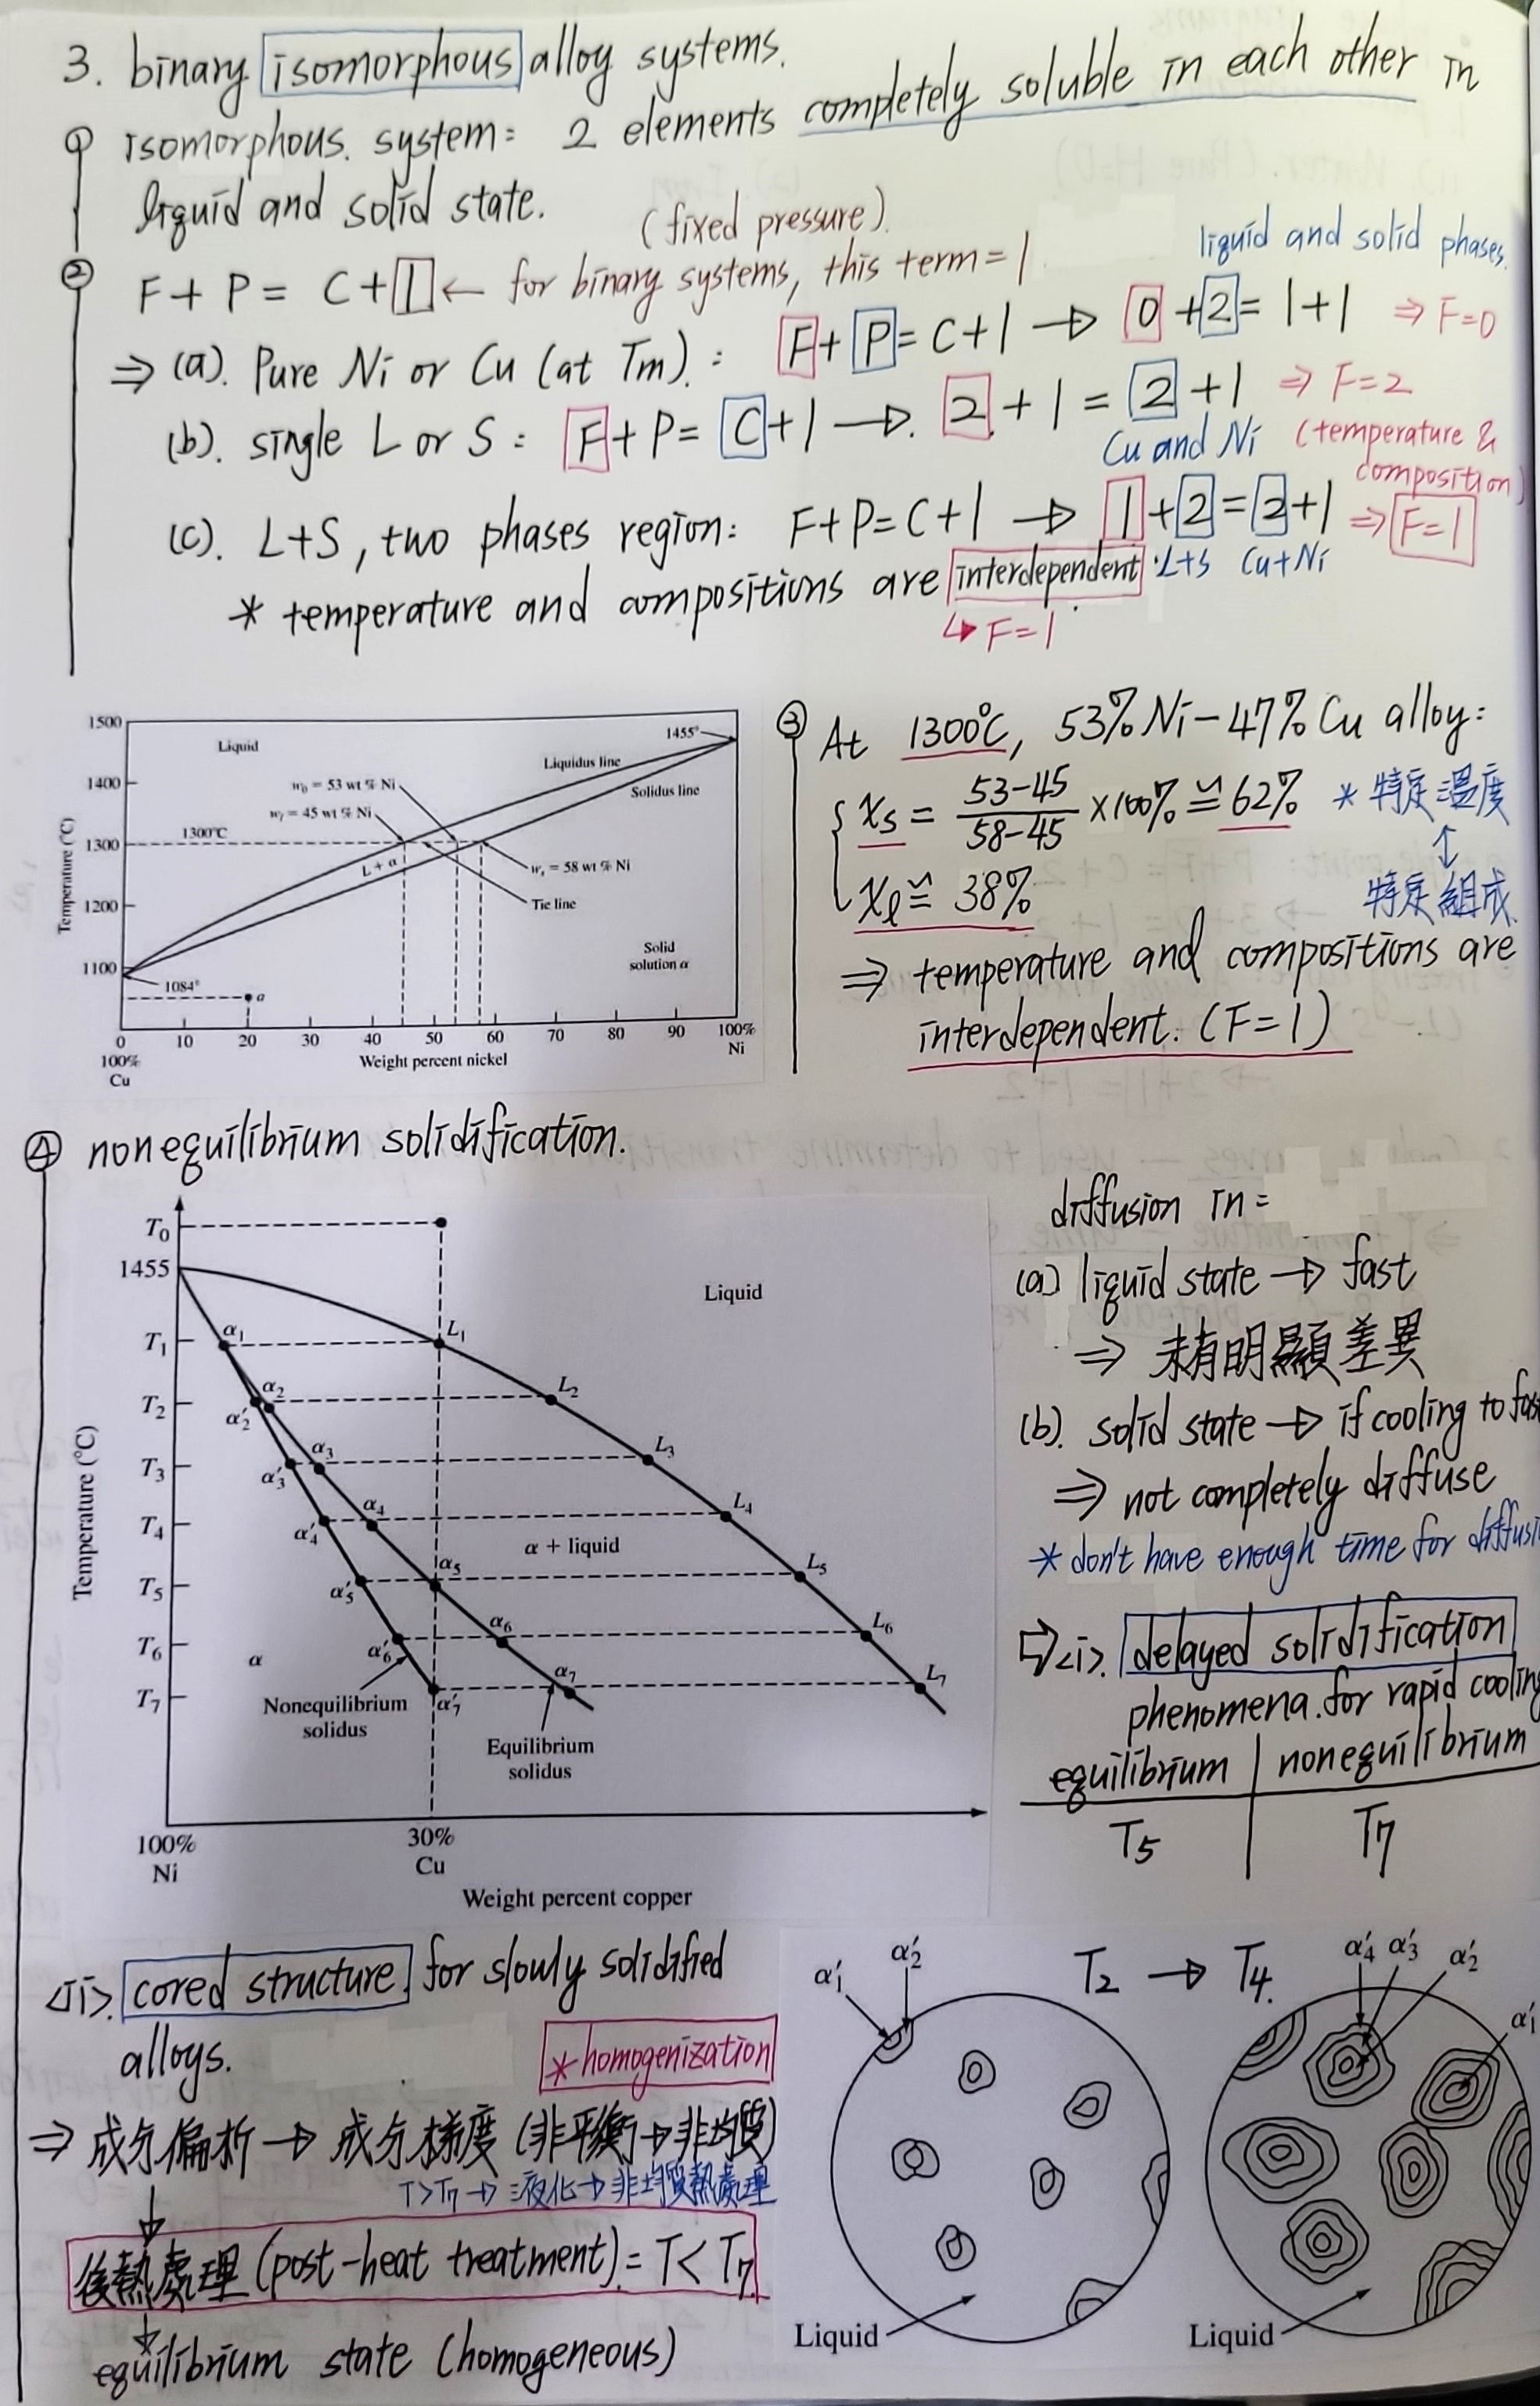 3. binary isomorphous alloy systems.
① isomorphous. system: 2 elements completely soluble in each other in
liquid and solid state.
(fixed pressure).
② F + P = C + 1 ← for binary systems, this term = 1
liquid and solid phases.
⇒ (a). Pure Ni or Cu (at Tm). : F + P = C + 1 → 0 + 2 = 1 + 1 ⇒ F=0
(b). single L or S : F + P = C + 1 → 2 + 1 = 2 + 1 ⇒ F=2
Cu and Ni (temperature & composition)
(c). L+S, two phases region: F+P=C+1 → 1+2=2+1 ⇒ F=1
L+S Cu+Ni
* temperature and compositions are interdependent.
↳ F=1
1500
1400
1300
1200
1100
Temperature (°C)
Liquid
1455°
Liquidus line
Solidus line
w₀ = 53 wt % Ni
wₗ = 45 wt % Ni
1300°C
L + α
wₛ = 58 wt % Ni
Tie line
Solid
solution α
1084°
a
0 10 20 30 40 50 60 70 80 90 100%
100%
Cu
Weight percent nickel
Ni
③ At 1300°C, 53% Ni - 47% Cu alloy:
xs = 53-45 / 58-45 ×100% ≌ 62% * 特定溫度
↕
xl ≌ 38% 特定組成
⇒ temperature and compositions are
interdependent. (F=1)
④ nonequilibrium solidification.
T₀
1455
T₁
T₂
T₃
T₄
T₅
T₆
T₇
Temperature (°C)
Liquid
α₁ L₁
α₂ L₂
α′₂
α₃ L₃
α′₃
α₄ L₄
α′₄
α + liquid
α₅ L₅
α′₅
α₆ L₆
α′₆
α
α₇ L₇
α′₇
Nonequilibrium
solidus
Equilibrium
solidus
100%
Ni
30%
Cu
Weight percent copper
diffusion in =
(a) liquid state → fast
⇒ 未有明顯差異
(b). solid state → if cooling to fast
⇒ not completely diffuse
* don't have enough time for
⇨ <i>. delayed solidification
phenomena. for rapid cooling
equilibrium | nonequilibrium
T5 | T7
<ii>. cored structure. for slowly solidified
alloys.
* homogenization
⇒ 成分偏析 → 成分梯度 (非平衡→非均質)
T>T7 → 液化 → 非均質熱處理
↓
後熱處理 (post-heat treatment) = T < T7
↓
equilibrium state (homogeneous)
α′₁ α′₂
T2 → T4.
α′₄ α′₃ α′₂
α′₁
Liquid
Liquid